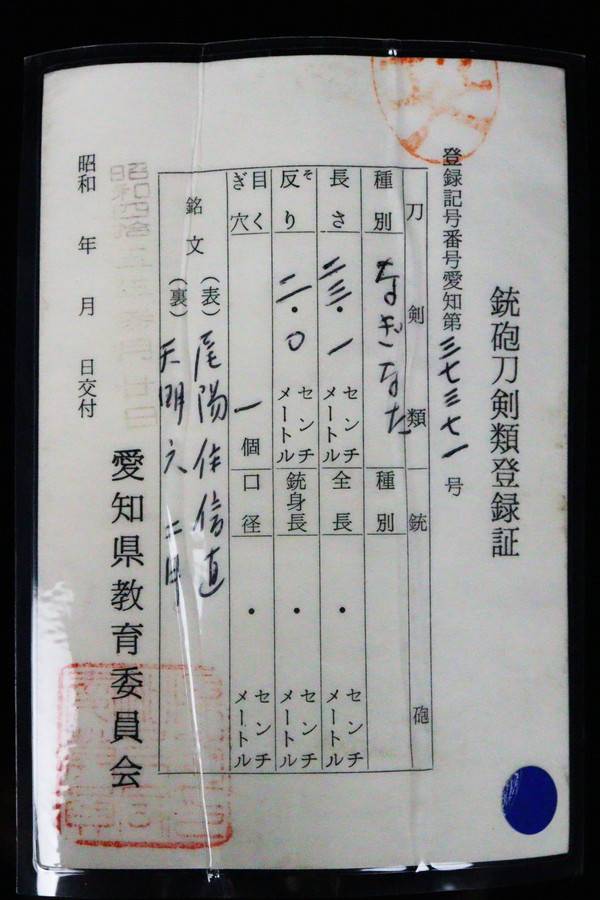 銃砲刀剣類登録証
登録記号番号愛知第三七三七一号
刀剣類
種別 なぎなた
長さ 二三・一 センチメートル
反り そ 二・〇 センチメートル
目くぎ穴 一個
銘文
(表) 尾陽住信直
(裏) 天明六 二月
銃砲
種別
全長 ・ センチメートル
銃身長 ・ センチメートル
口径 ・ センチメートル
昭和 年 月 日交付
愛知県教育委員会